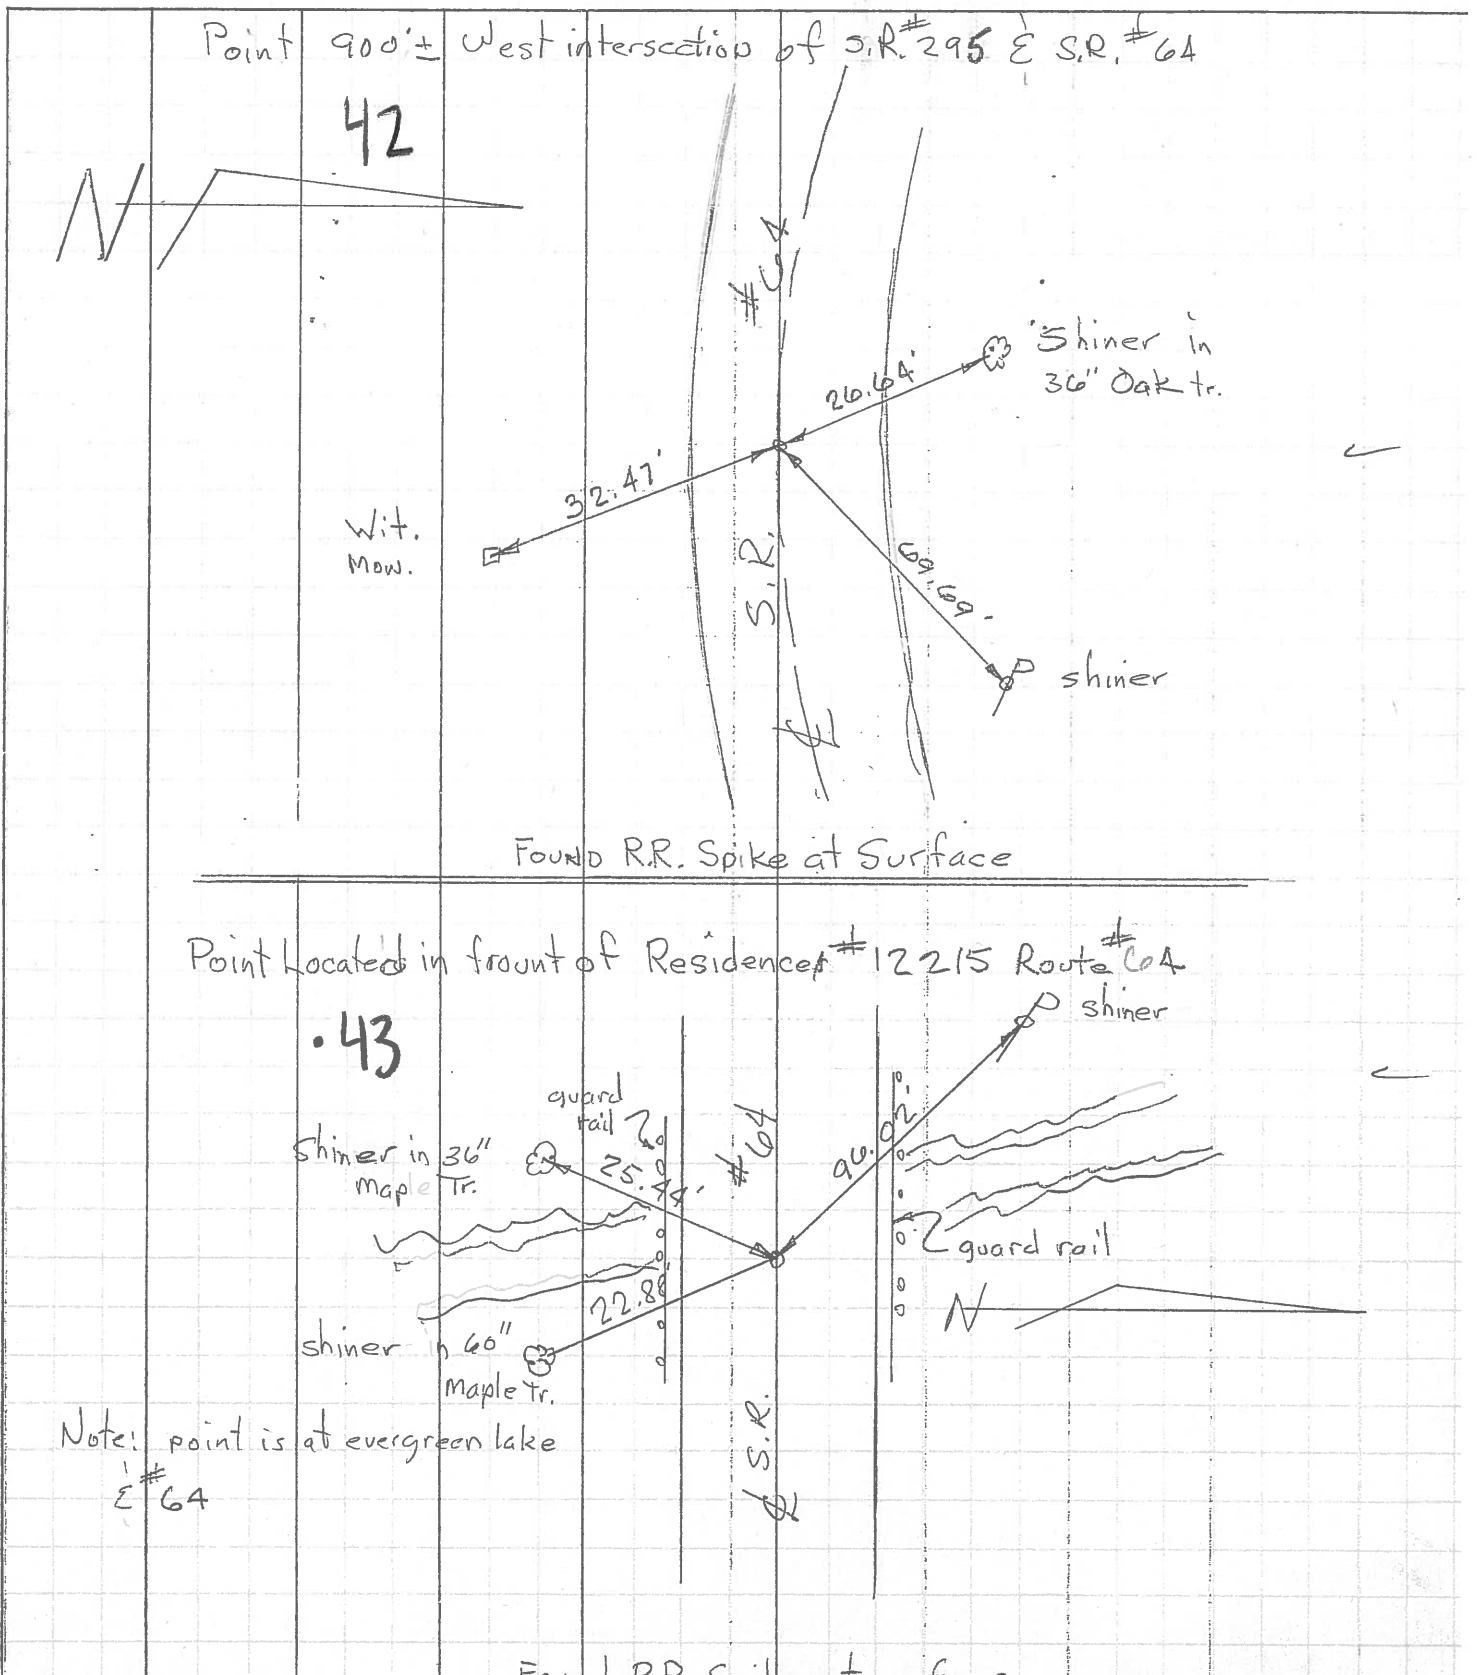 Point 900'± West intersection of S.R.#295 & S.R.#64
42
N
#64
Shiner in
36" Oak tr.
26.64'
32.47'
Wit.
Mow.
S.R.
69.69'
shiner
℄
Found R.R. Spike at Surface
Point Located in frount of Residence #12215 Route #64
.43
shiner
guard
rail
#64
Shiner in 36"
Maple Tr.
25.44'
96.02'
guard rail
22.88'
N
shiner in 60"
Maple tr.
Note: point is at evergreen lake
& #64
℄ S.R.
Found R.R. Spike at